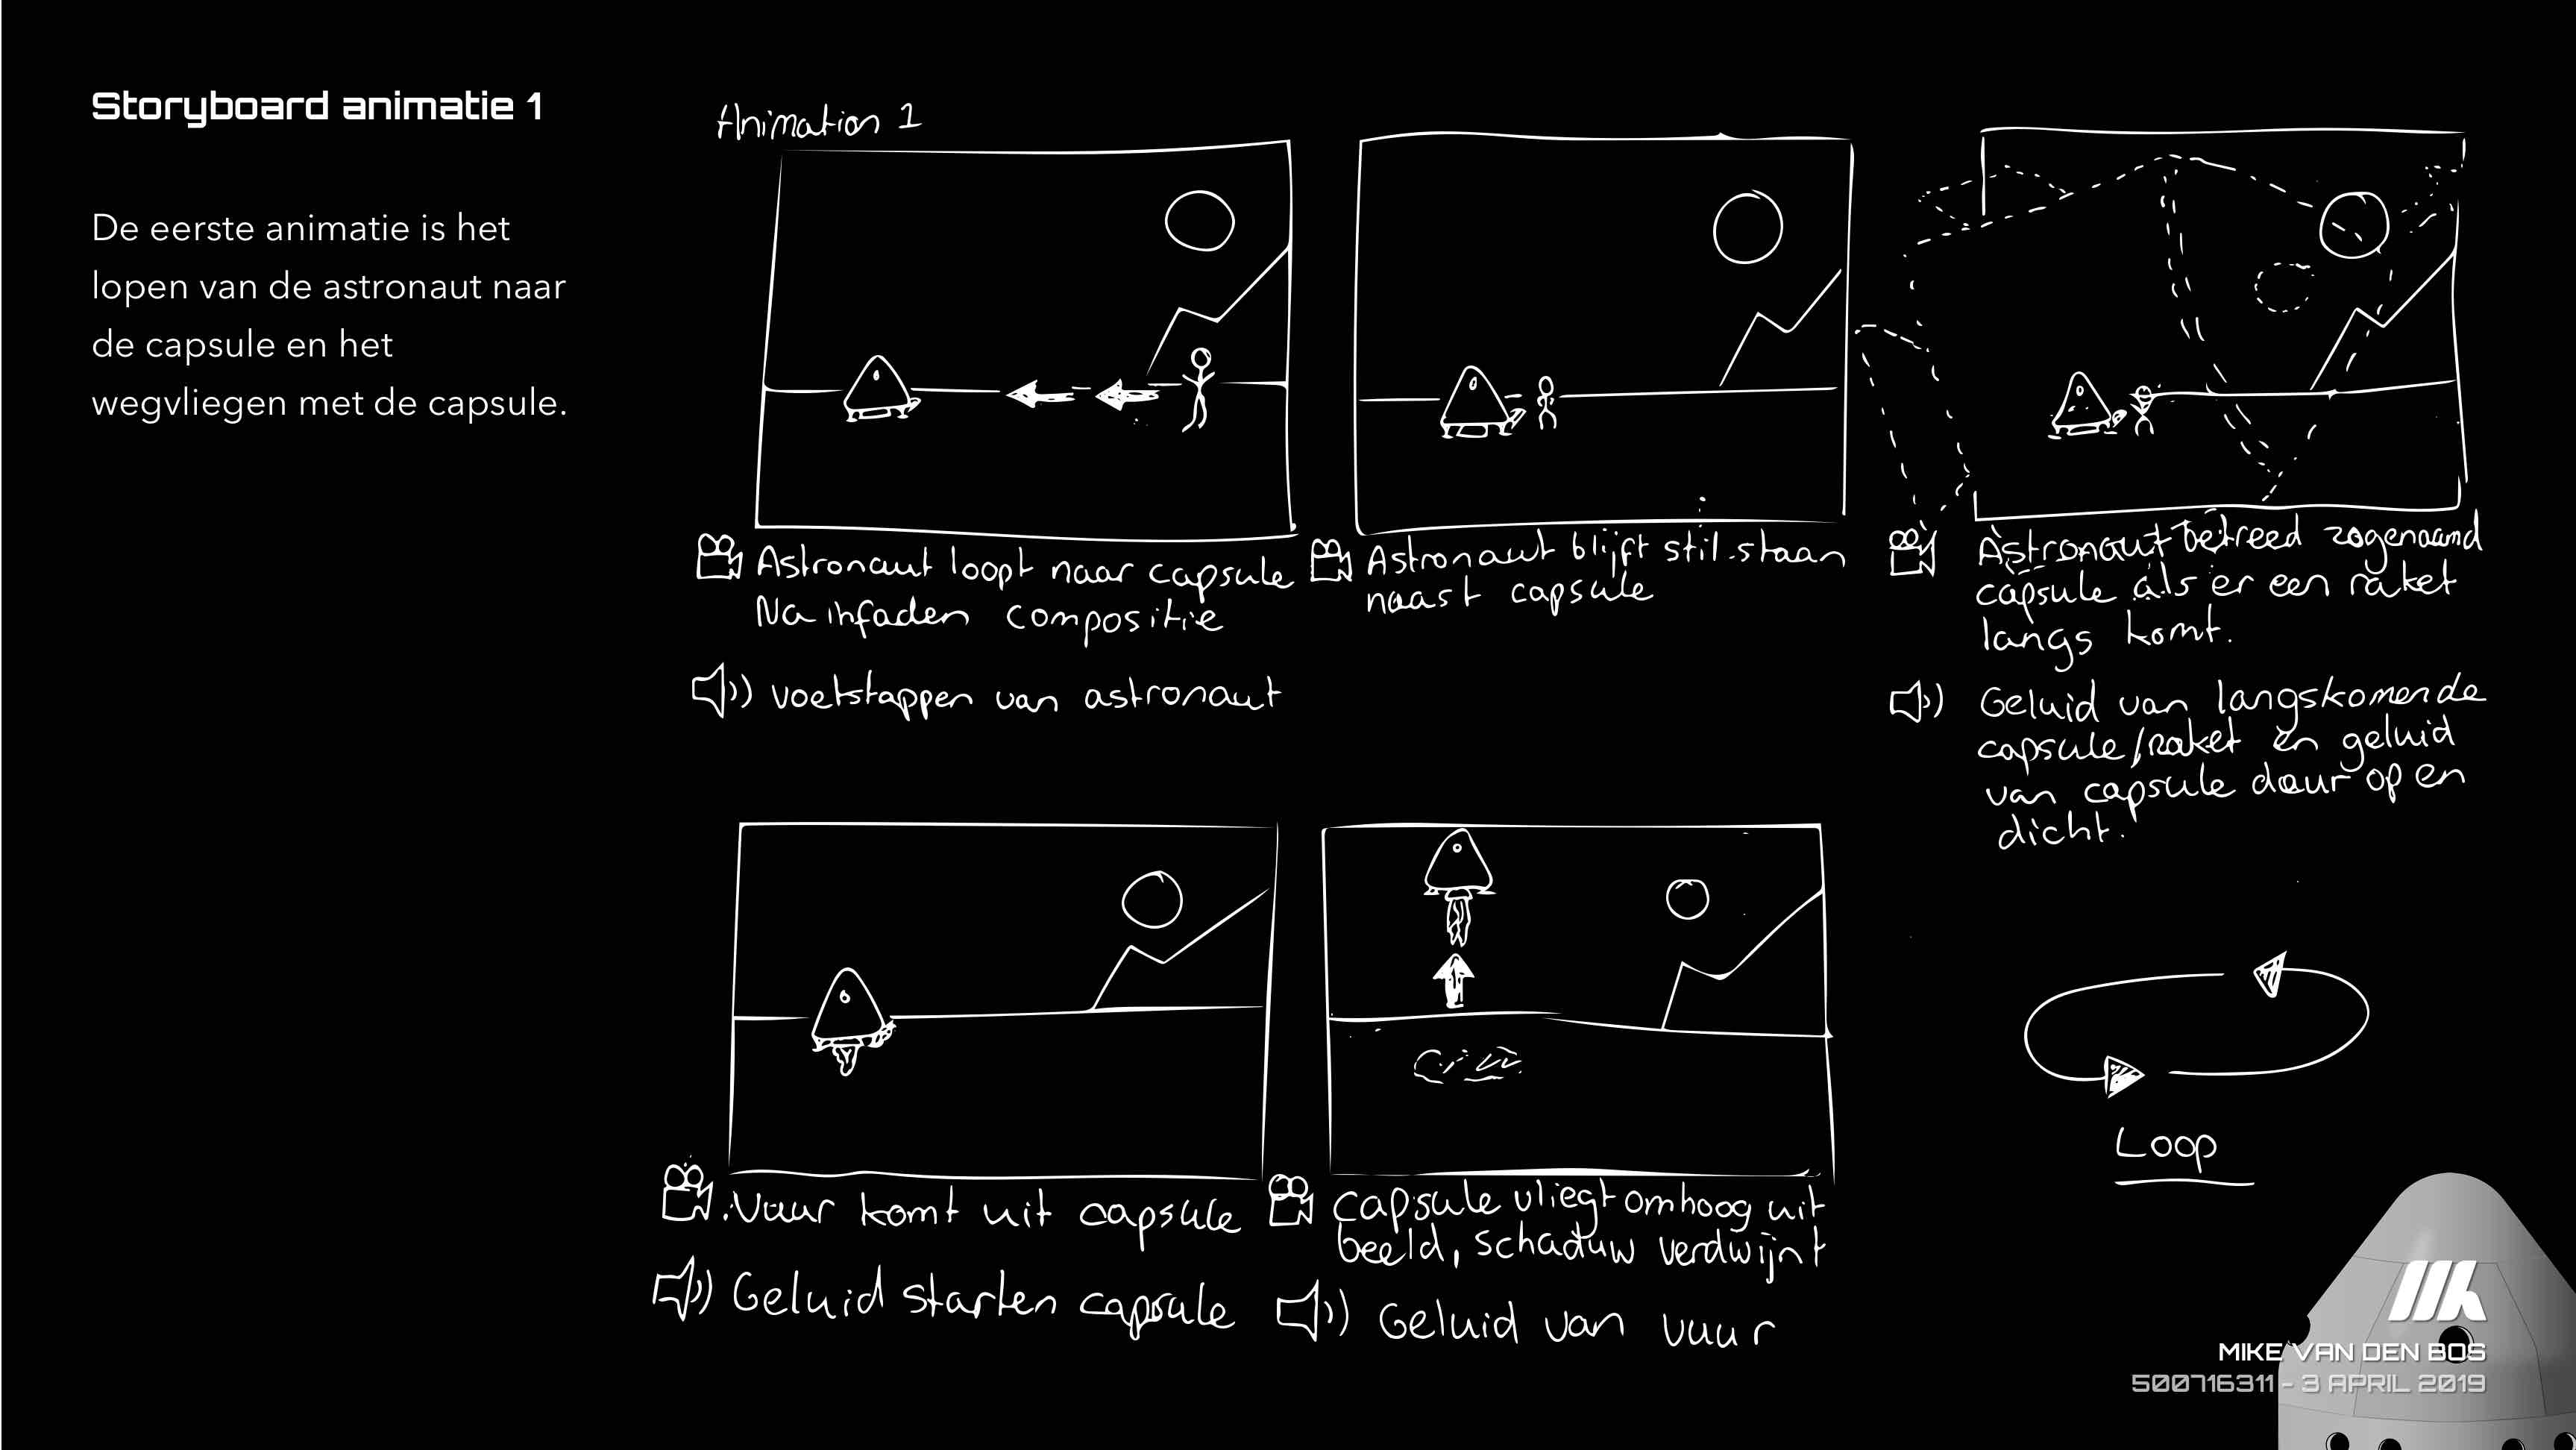 Storyboard animatie 1
De eerste animatie is het
lopen van de astronaut naar
de capsule en het
wegvliegen met de capsule.
Animation 1
Astronaut loopt naar capsule
Na infaden compositie
voetstappen van astronaut
Astronaut blijft stil staan
naast capsule
Astronaut betreed zogenaamd
capsule als er een raket
langs komt.
Geluid van langskomende
capsule/raket en geluid
van capsule deur op en
dicht.
Vuur komt uit capsule
Geluid starten capsule
capsule vliegt omhoog uit
beeld, schaduw verdwijnt
Geluid van vuur
Loop
MIKE VAN DEN BOS
500716311 - 3 APRIL 2019